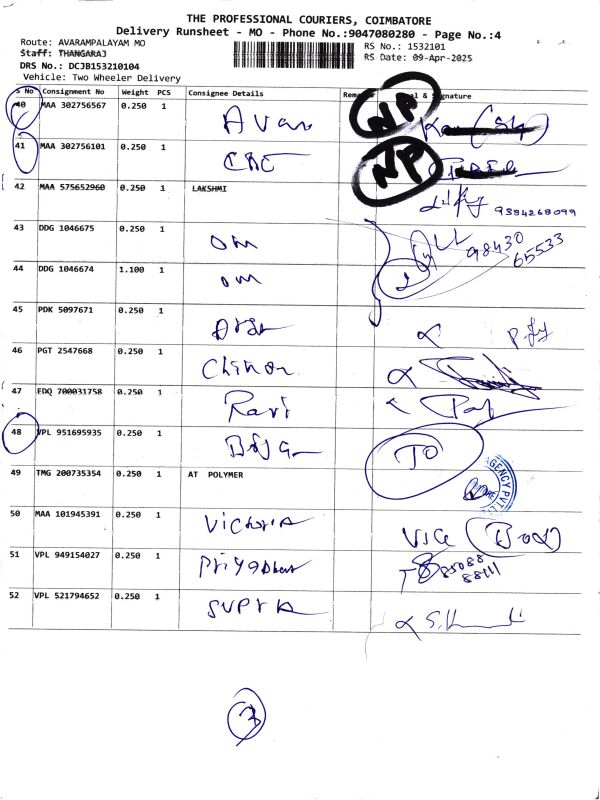 THE PROFESSIONAL COURIERS, COIMBATORE
Delivery Runsheet - MO - Phone No.:9047080280 - Page No.:4
Route: AVARAMPALAYAM MO
RS No.: 1532101
Staff: THANGARAJ
RS Date: 09-Apr-2025
DRS No.: DCJB153210104
Vehicle: Two Wheeler Delivery
S No Consignment No Weight PCS Consignee Details & Signature
40 MAA 302756567 0.250 1 NP
41 MAA 302756101 0.250 1 NP
42 MAA 575652960 0.250 1 LAKSHMI
9384268099
43 DDG 1046675 0.250 1 OM 98430
65533
44 DDG 1046674 1.100 1 OM 2
45 PDK 5097671 0.250 1
46 PGT 2547668 0.250 1
47 EDQ 700031758 0.250 1 Ravi
48 VPL 951695935 0.250 1 TO
49 TMG 200735354 0.250 1 AT POLYMER
AGENCY PVT.
50 MAA 101945391 0.250 1 Victoria
51 VPL 949154027 0.250 1 85088
88111
52 VPL 521794652 0.250 1 SUPRA